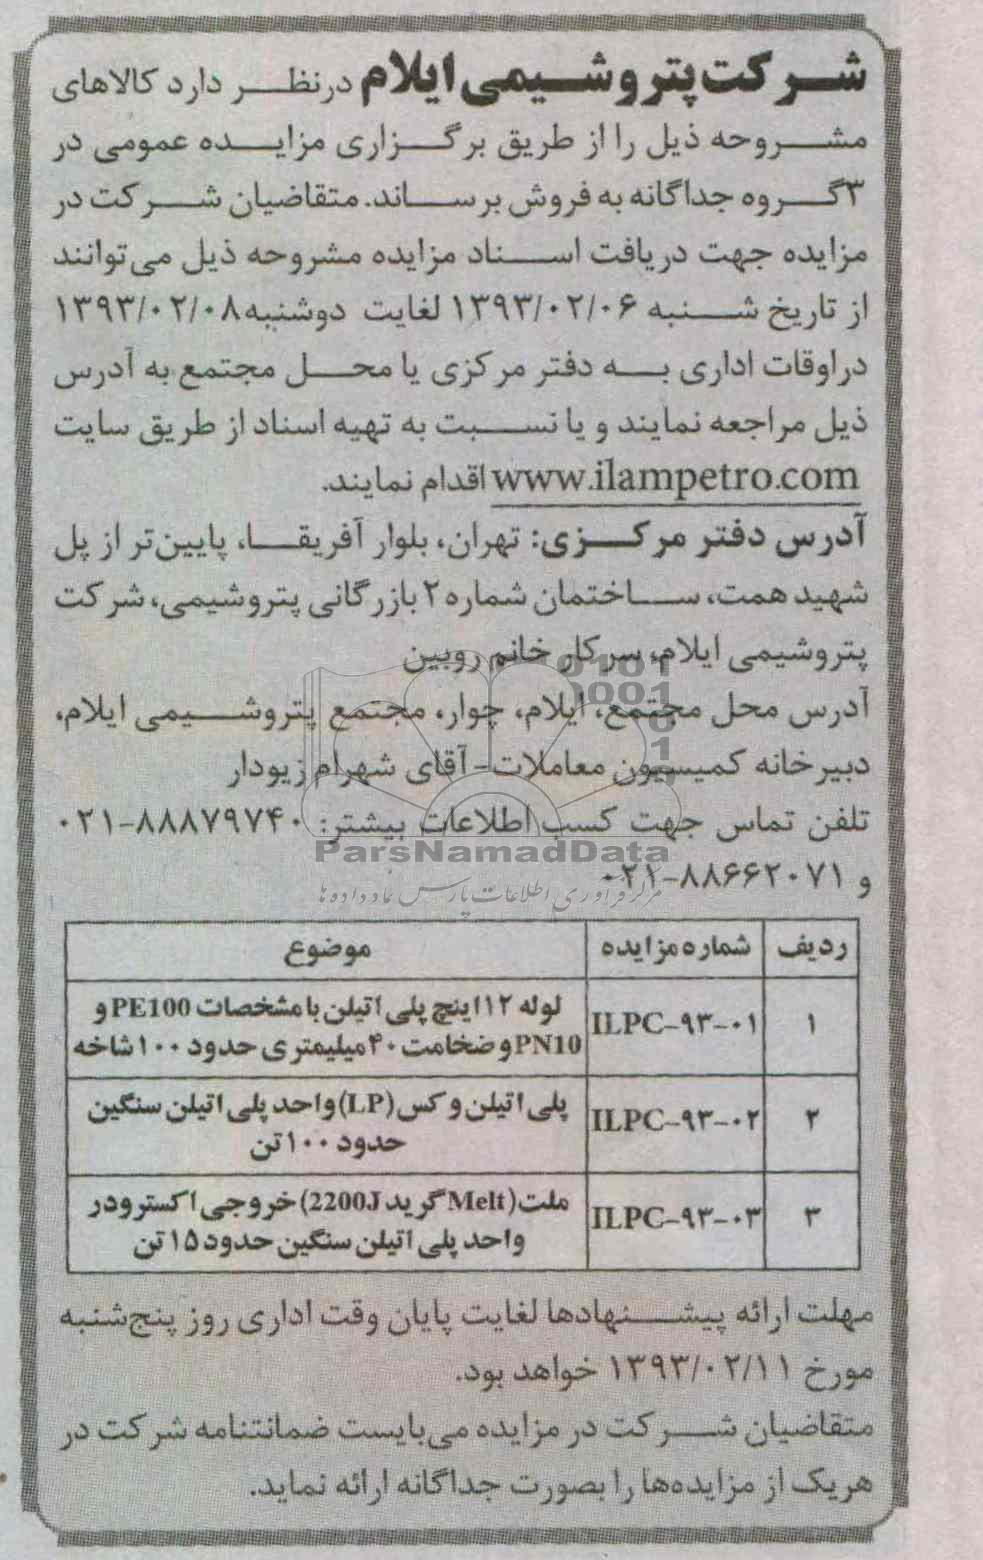 شرکت پتروشیمی ایلام درنظر دارد کالاهای
مشروحه ذیل را از طریق برگزاری مزایده عمومی در
۳گروه جداگانه به فروش برساند. متقاضیان شرکت در
مزایده جهت دریافت اسناد مزایده مشروحه ذیل می‌توانند
از تاریخ شنبه ۱۳۹۳/۰۲/۰۶ لغایت دوشنبه۱۳۹۳/۰۲/۰۸
دراوقات اداری به دفتر مرکزی یا محل مجتمع به آدرس
ذیل مراجعه نمایند و یا نسبت به تهیه اسناد از طریق سایت
www.ilampetro.com اقدام نمایند.
آدرس دفتر مرکزی: تهران، بلوار آفریقا، پایین‌تر از پل
شهید همت، ساختمان شماره ۲ بازرگانی پتروشیمی، شرکت
پتروشیمی ایلام، سرکار خانم رویین
آدرس محل مجتمع، ایلام، چوار، مجتمع پتروشیمی ایلام،
دبیرخانه کمیسیون معاملات- آقای شهرام زیودار
تلفن تماس جهت کسب اطلاعات بیشتر: ۸۸۸۷۹۷۴۰-۰۲۱
و ۸۸۶۶۲۰۷۱-۰۲۱
0101
0001
01
1
ParsNamadData
مرکز فرآوری اطلاعات پارس نماد داده ها
ردیف شماره مزایده موضوع
۱ ILPC-۹۳-۰۱ لوله ۱۲اینچ پلی اتیلن با مشخصات PE100 و
PN10 و ضخامت ۴۰میلیمتری حدود ۱۰۰شاخه
۲ ILPC-۹۳-۰۲ پلی اتیلن وکس (LP) واحد پلی اتیلن سنگین
حدود ۱۰۰تن
۳ ILPC-۹۳-۰۳ ملت (Melt گرید 2200J) خروجی اکسترودر
واحد پلی اتیلن سنگین حدود ۱۵تن
مهلت ارائه پیشنهادها لغایت پایان وقت اداری روز پنج‌شنبه
مورخ ۱۳۹۳/۰۲/۱۱ خواهد بود.
متقاضیان شرکت در مزایده می‌بایست ضمانتنامه شرکت در
هریک از مزایده‌ها را بصورت جداگانه ارائه نماید.